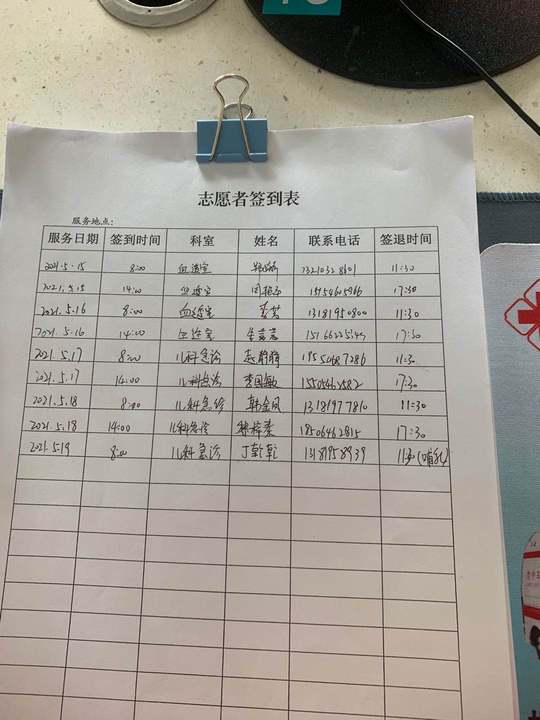 志愿者签到表
服务地点:
服务日期 签到时间 科室 姓名 联系电话 签退时间
2021.5.15 8:00 血透室 11:30
2021.5.15 14:00 血透室 17:30
2021.5.16 8:00 血透室 13181950800 11:30
2021.5.16 14:00 血透室 17:30
2021.5.17 8:00 儿科急诊 赵静静 11:30
2021.5.17 14:00 儿科急诊 李国敏 17:30
2021.5.18 8:00 儿科急诊 韩金凤 13181977810 11:30
2021.5.18 14:00 儿科急诊 18506462815 17:30
2021.5.19 8:00 儿科急诊 丁乾乾 13181958939 11:30(哺乳)